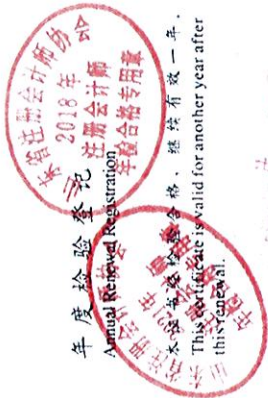 年度检验登记
Annual Renewal Registration
本证书经检验合格，继续有效一年。
This certificate is valid for another year after
this renewal.
东省注册会计师协会
2018年
注册会计师
年检合格专用章
东省注册会计师协会
2021年